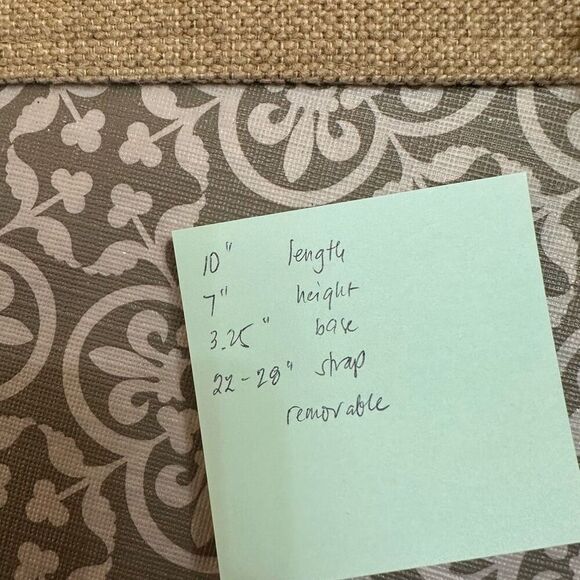 10" length
7" height
3.25" base
22-28" strap
removable